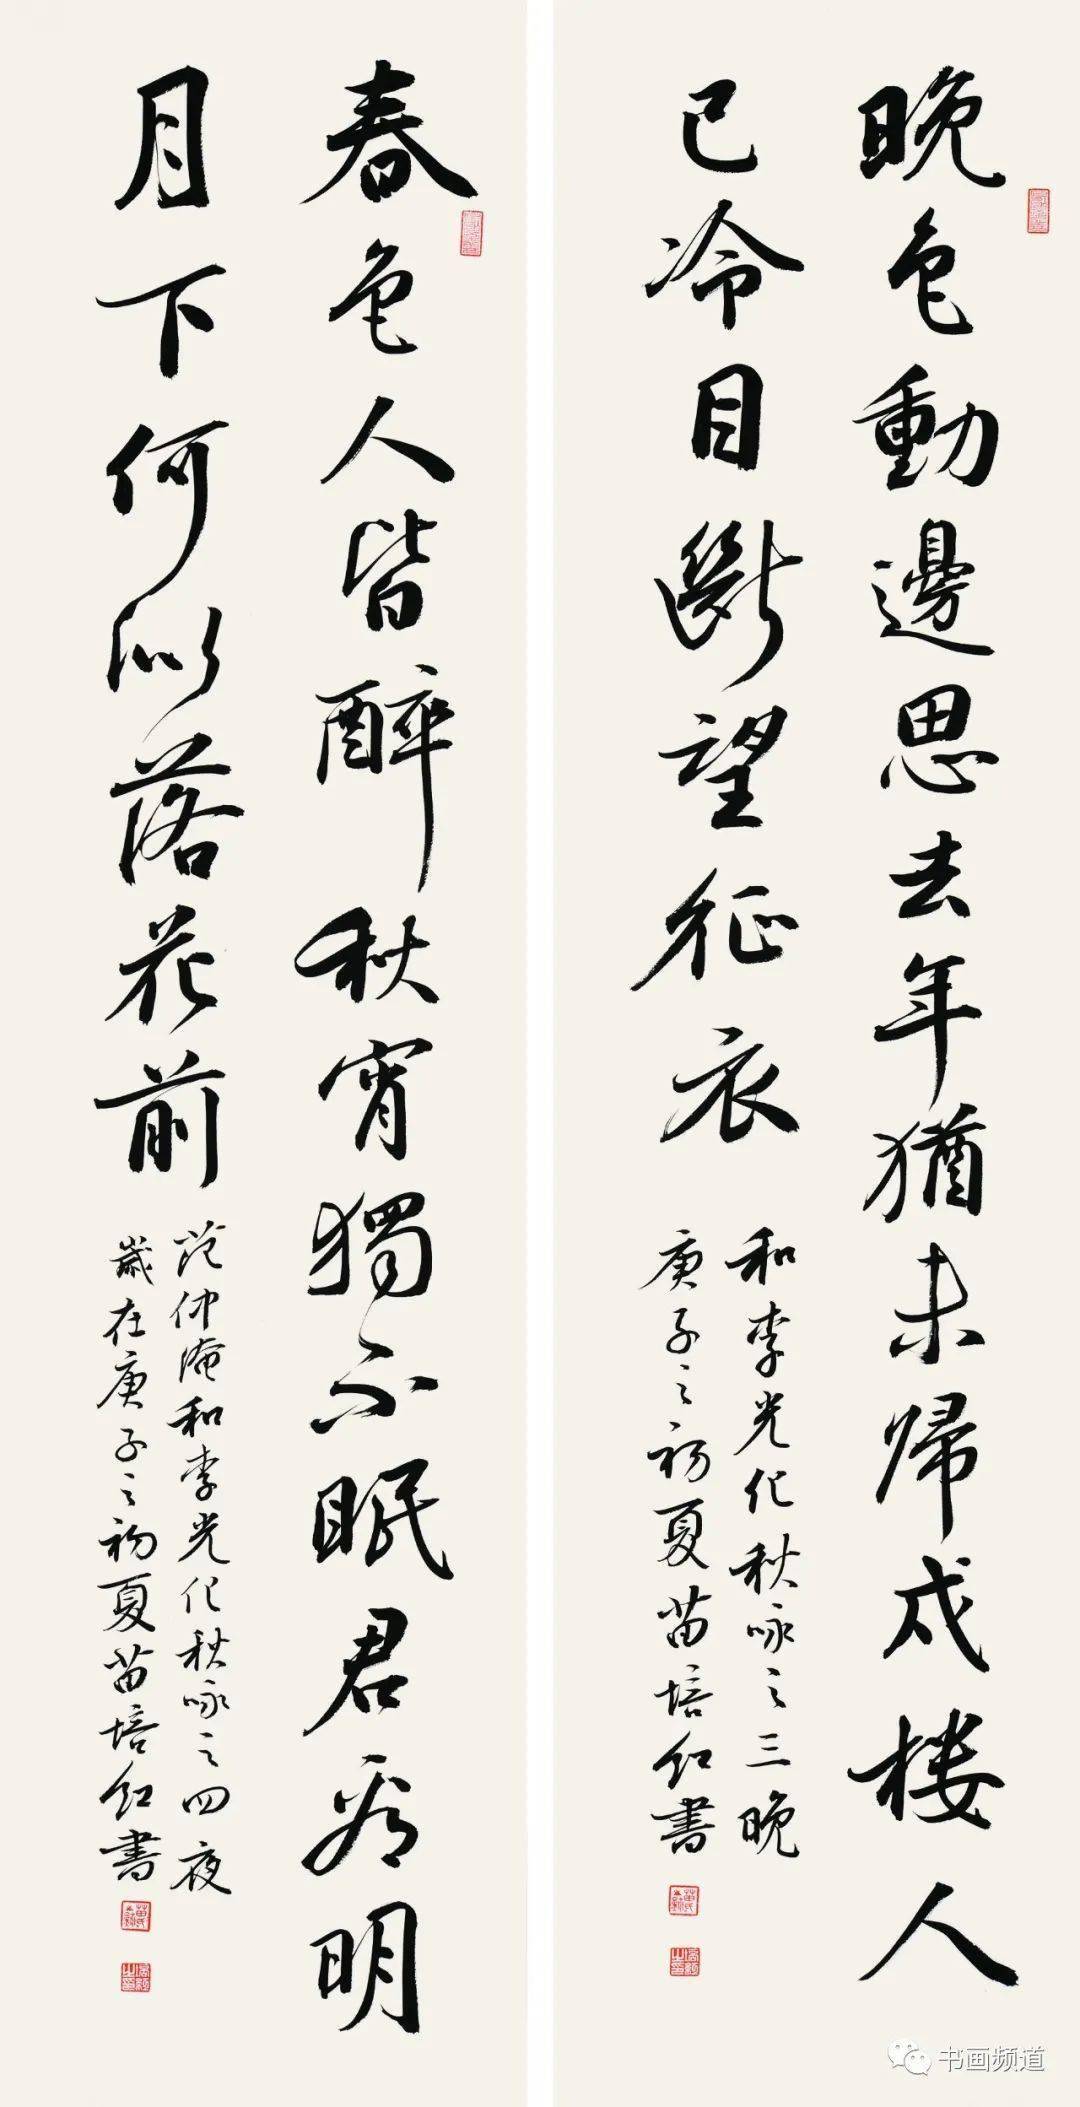 晚色動邊思去年猶未歸戍楼人
已冷目斷望征衣
和李光化秋咏之三晚
庚子之初夏苗培红書
春色人皆醉秋宵獨不眠君看明
月下何似落花前
范仲淹和李光化秋咏之四夜
歲在庚子之初夏苗培红書
书画频道